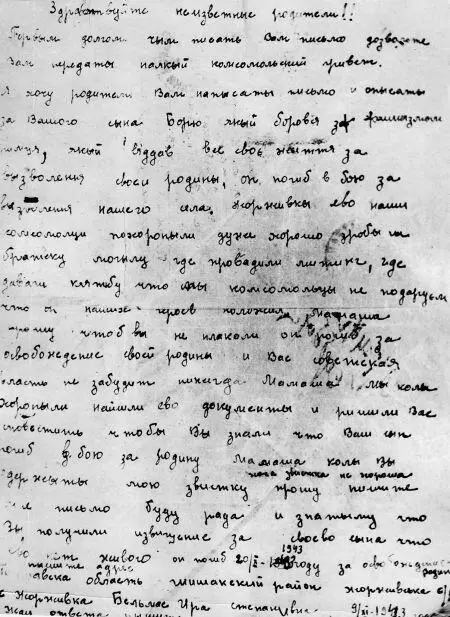 Здравствуйте неизвестные родители!!
Первым долгом чым писать Вам письмо дозвольте
Вам передаты палкый комсомольский привет.
Я хочу родители Вам написаты письмо и описаты
за Вашого сына Борю якый боровся за фашизмом
якый віддав все своє життя за
вызволения своєи родины, он погиб в бою за
вызволения нашего села Жорживкы ево наши
комсомолци похоронылы дуже хорошо зробылы
братску могылу где проводили митинг, где
давали клятбу что мы комсомольцы не подаруем
что он нашие кров Мамаша
прошу чтоб вы не плакали он погиб за
освобонедение своей родины и Вас советская
власть не забудит никогда Мамаша мы колы
хоронылы найшли ево документы и ришили Вас
сповистить чтобы Вы знали что Ваш сын
погиб в бою за родину Мамаша колы Вы
хота звистка не хороша
держыты мою звистку прошу пишите
мне письмо буду рада и знатыму что
Вы получили извищение за своево сына что
нет живого он погиб 20/IX-1943 году за освобонедение родины
пишите адрес
область шишакский район Жорживська с/р
с Жоржівка Бельмас Ира степановна 9/XI-1943
Жду ответа